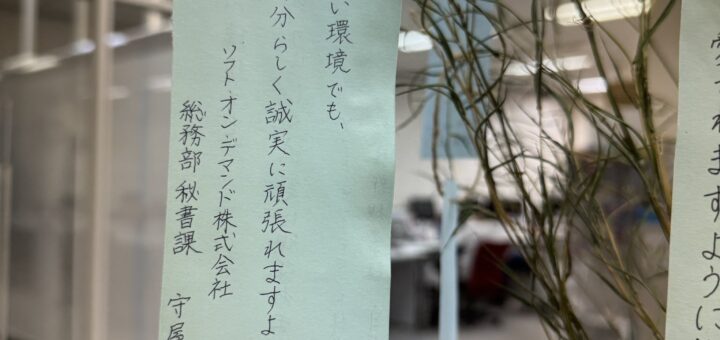 い環境でも、
分らしく誠実に頑張れますよ
ソフト・オン・デマンド株式会社
総務部 秘書課 守屋
れますように